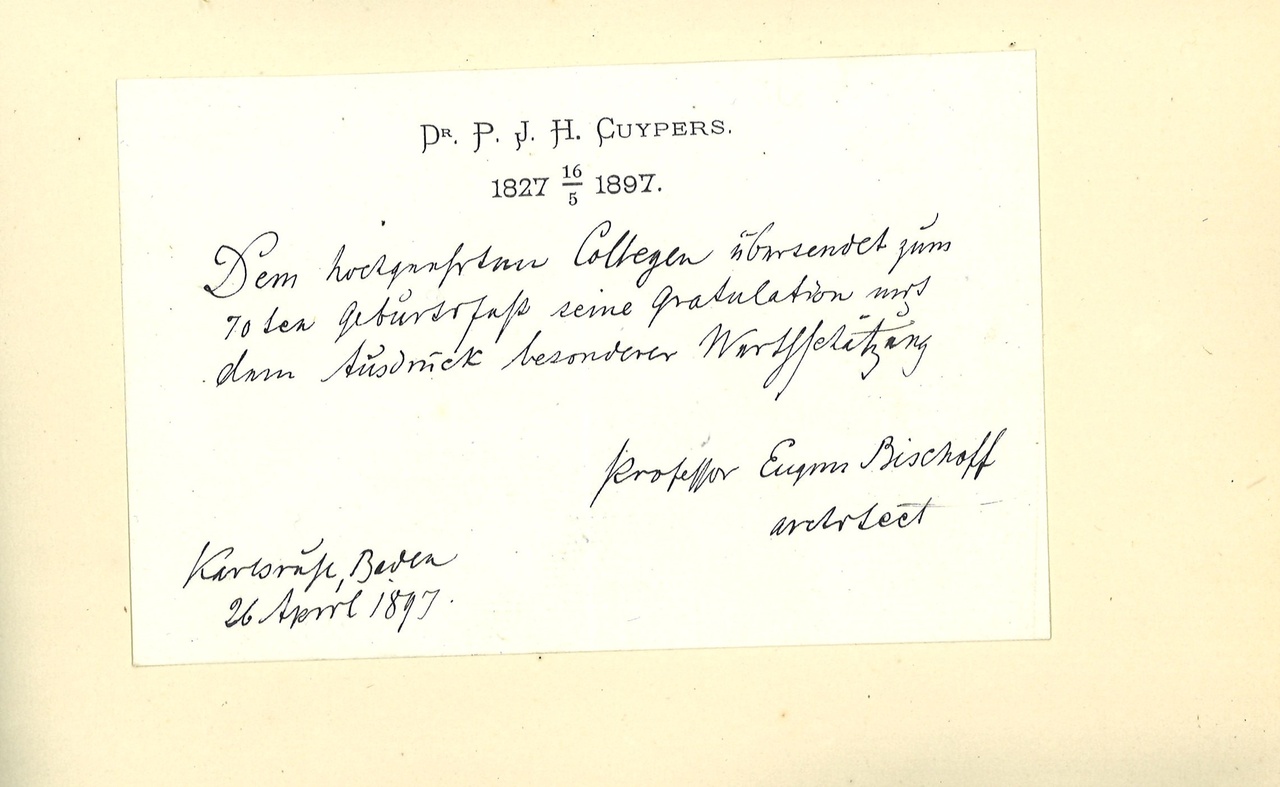 Dr. P. J. H. Cuypers.
1827 16/5 1897.
Dem hochgeehrten Collegen übersendet zum
70ten Geburtsfest seine Gratulation mit
dem Ausdruck besonderer Werthschätzung
Professor Eugen Bischoff
architect
Karlsruhe, Baden
26 April 1897.